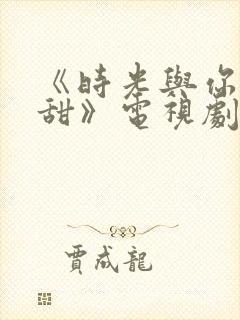 《時光與你
甜》電視劇
賈成龍